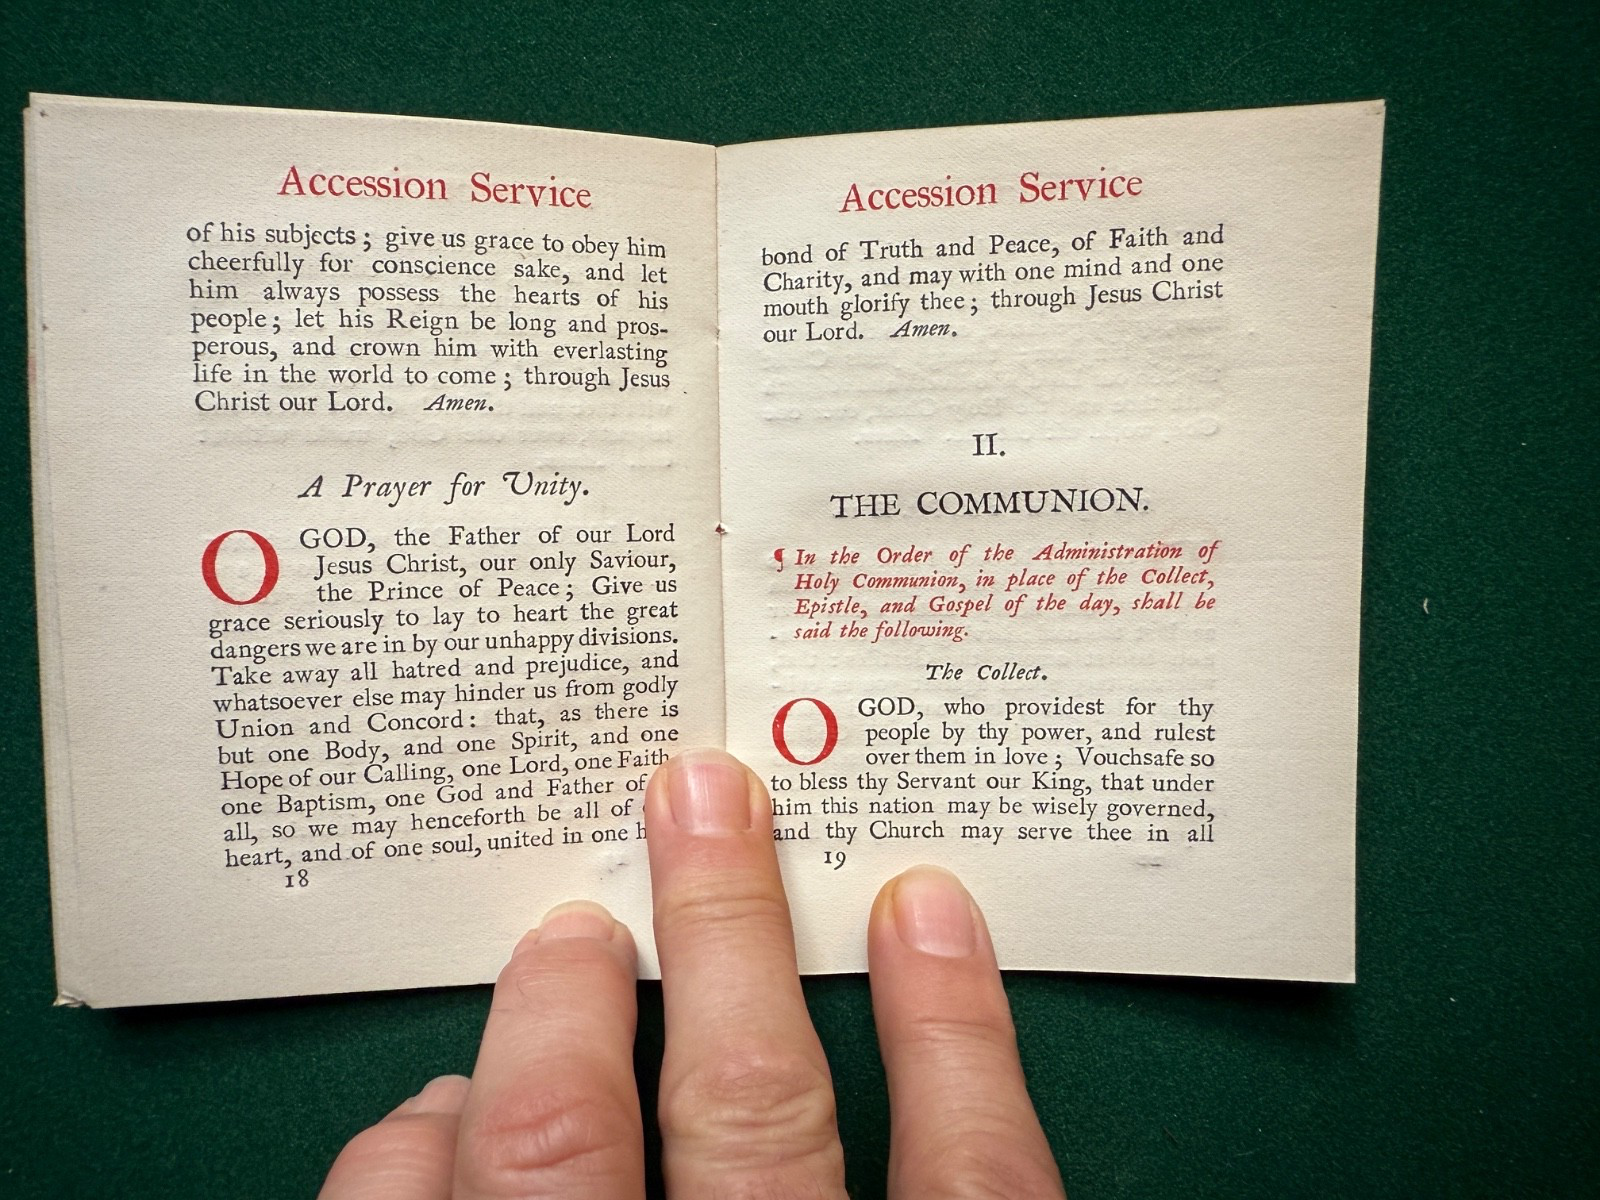 Accession Service
of his subjects; give us grace to obey him
cheerfully for conscience sake, and let
him always possess the hearts of his
people; let his Reign be long and pros-
perous, and crown him with everlasting
life in the world to come; through Jesus
Christ our Lord. Amen.
A Prayer for Unity.
O GOD, the Father of our Lord
Jesus Christ, our only Saviour,
the Prince of Peace; Give us
grace seriously to lay to heart the great
dangers we are in by our unhappy divisions.
Take away all hatred and prejudice, and
whatsoever else may hinder us from godly
Union and Concord: that, as there is
but one Body, and one Spirit, and one
Hope of our Calling, one Lord, one Faith
one Baptism, one God and Father of
all, so we may henceforth be all of
heart, and of one soul, united in one
18
Accession Service
bond of Truth and Peace, of Faith and
Charity, and may with one mind and one
mouth glorify thee; through Jesus Christ
our Lord. Amen.
II.
THE COMMUNION.
¶ In the Order of the Administration of
Holy Communion, in place of the Collect,
Epistle, and Gospel of the day, shall be
said the following.
The Collect.
O GOD, who providest for thy
people by thy power, and rulest
over them in love; Vouchsafe so
to bless thy Servant our King, that under
him this nation may be wisely governed,
and thy Church may serve thee in all
19